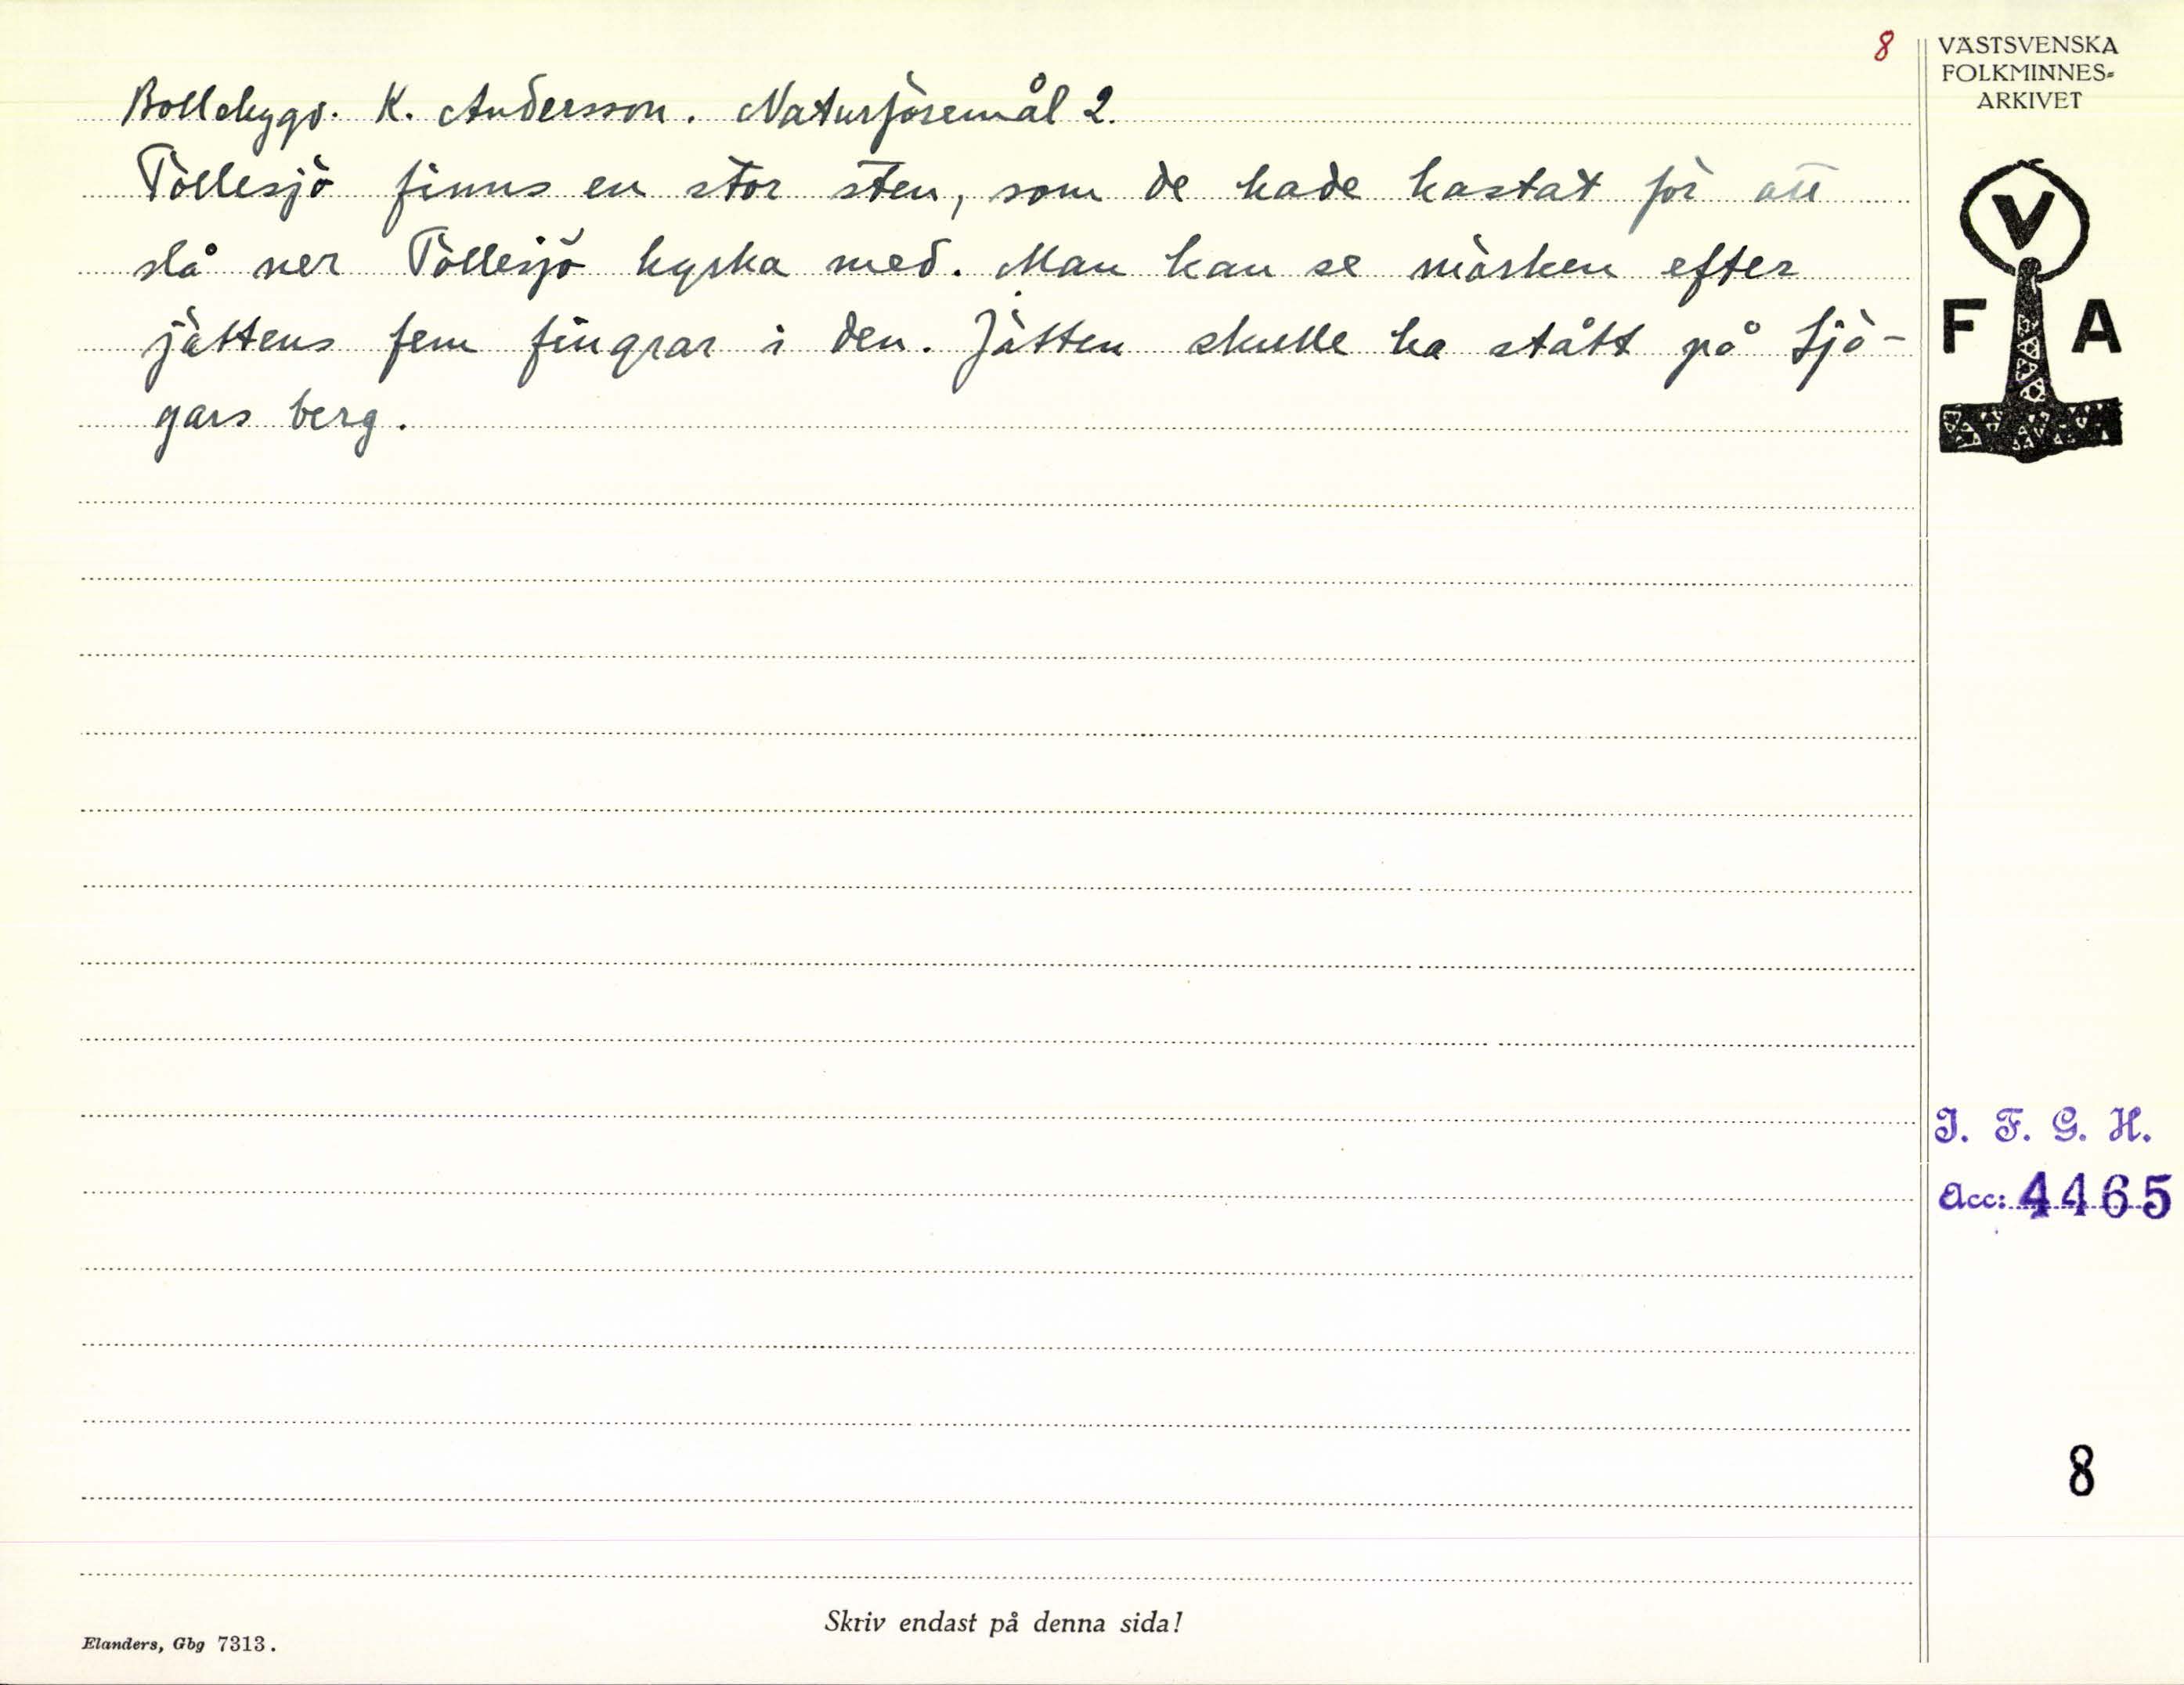 8
Bollebygd. K. Andersson. Naturföremål 2.
Töllesjö finns en stor sten, som de hade kastat för att
slå ner Töllesjö kyrka med. Man kan se märken efter
jättens fem fingrar i den. Jätten skulle ha stått på Sjö-
gars berg.
VÄSTSVENSKA
FOLKMINNES-
ARKIVET
V
F A
I. F. G. H.
Acc: 4465
8
Skriv endast på denna sida!
Elanders, Gbg 7313.